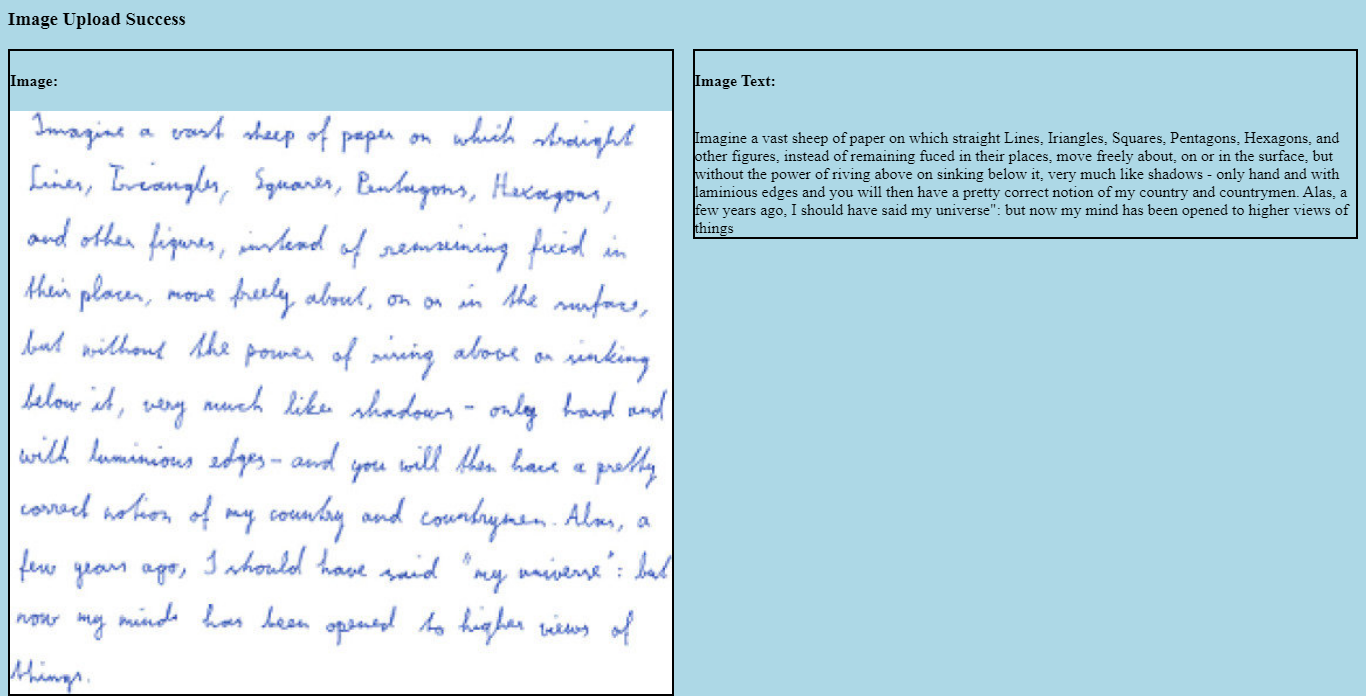 Image Upload Success
Image:
Imagine a vast sheep of paper on which straight
Lines, Triangles, Squares, Pentagons, Hexagons,
and other figures, instead of remaining fixed in
their places, move freely about, on or in the surface,
but without the power of rising above or sinking
below it, very much like shadows - only hard and
with luminious edges - and you will then have a pretty
correct notion of my country and countrymen. Alas, a
few years ago, I should have said "my universe": but
now my mind has been opened to higher views of
things.
Image Text:
Imagine a vast sheep of paper on which straight Lines, Iriangles, Squares, Pentagons, Hexagons, and
other figures, instead of remaining fuced in their places, move freely about, on or in the surface, but
without the power of riving above on sinking below it, very much like shadows - only hand and with
laminious edges and you will then have a pretty correct notion of my country and countrymen. Alas, a
few years ago, I should have said my universe": but now my mind has been opened to higher views of
things